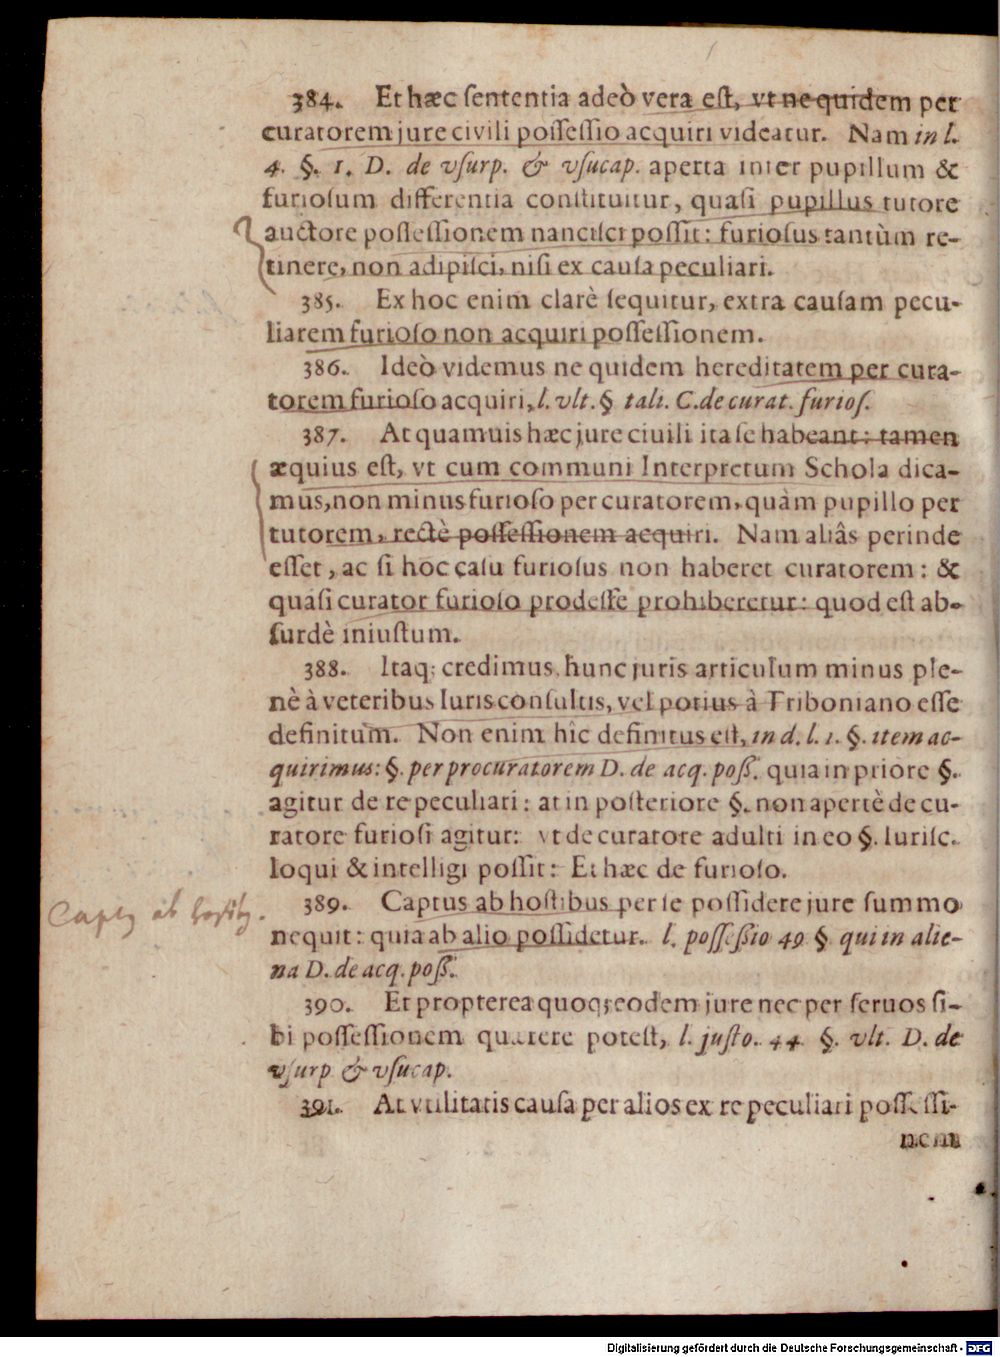 384. Et hæc ſententia adeò vera eſt, vt ne quidem per
curatorem jure civili poſſeſſio acquiri videatur. Nam in l.
4. §. 1. D. de vſurp. & vſucap. aperta inter pupillum &
furioſum differentia conſtituitur, quaſi pupillus tutore
auctore poſſeſſionem nanciſci poſſit: furioſus tantùm re-
tinere, non adipiſci, niſi ex cauſa peculiari.
385. Ex hoc enim clarè ſequitur, extra cauſam pecu-
liarem furioſo non acquiri poſſeſſionem.
386. Ideò videmus ne quidem hereditatem per cura-
torem furioſo acquiri, l. vlt. § tali. C. de curat. furioſ.
387. At quamuis hæc jure ciuili ita ſe habeant: tamen
æquius eſt, vt cum communi Interpretum Schola dica-
mus, non minus furioſo per curatorem, quàm pupillo per
tutorem, rectè poſſeſſionem acquiri. Nam aliâs perinde
eſſet, ac ſi hoc caſu furioſus non haberet curatorem: &
quaſi curator furioſo prodeſſe prohiberetur: quod eſt ab-
ſurdè iniuſtum.
388. Itaq; credimus hunc juris articulum minus ple-
nè à veteribus Iuriſconſultis, vel potius à Triboniano eſſe
definitum. Non enim hîc definitus eſt, in d. l. 1. §. item ac-
quirimus: §. per procuratorem D. de acq. poſſ. quia in priore §.
agitur de re peculiari: at in poſteriore §. non apertè de cu-
ratore furioſi agitur: vt de curatore adulti in eo §. Iuriſc.
loqui & intelligi poſſit: Et hæc de furioſo.
Captus ab hostibus.
389. Captus ab hoſtibus per ſe poſſidere jure ſummo
nequit: quia ab alio poſſidetur. l. poſſeſſio 49 § qui in alie-
na D. de acq. poſſ.
390. Et propterea quoq; eodem jure nec per ſeruos ſi-
bi poſſeſſionem quærere poteſt, l. juſto. 44 §. vlt. D. de
vſurp & vſucap.
391. At vtilitatis cauſa per alios ex re peculiari poſſeſſi-
nem
Digitalisierung gefördert durch die Deutsche Forschungsgemeinschaft - DFG